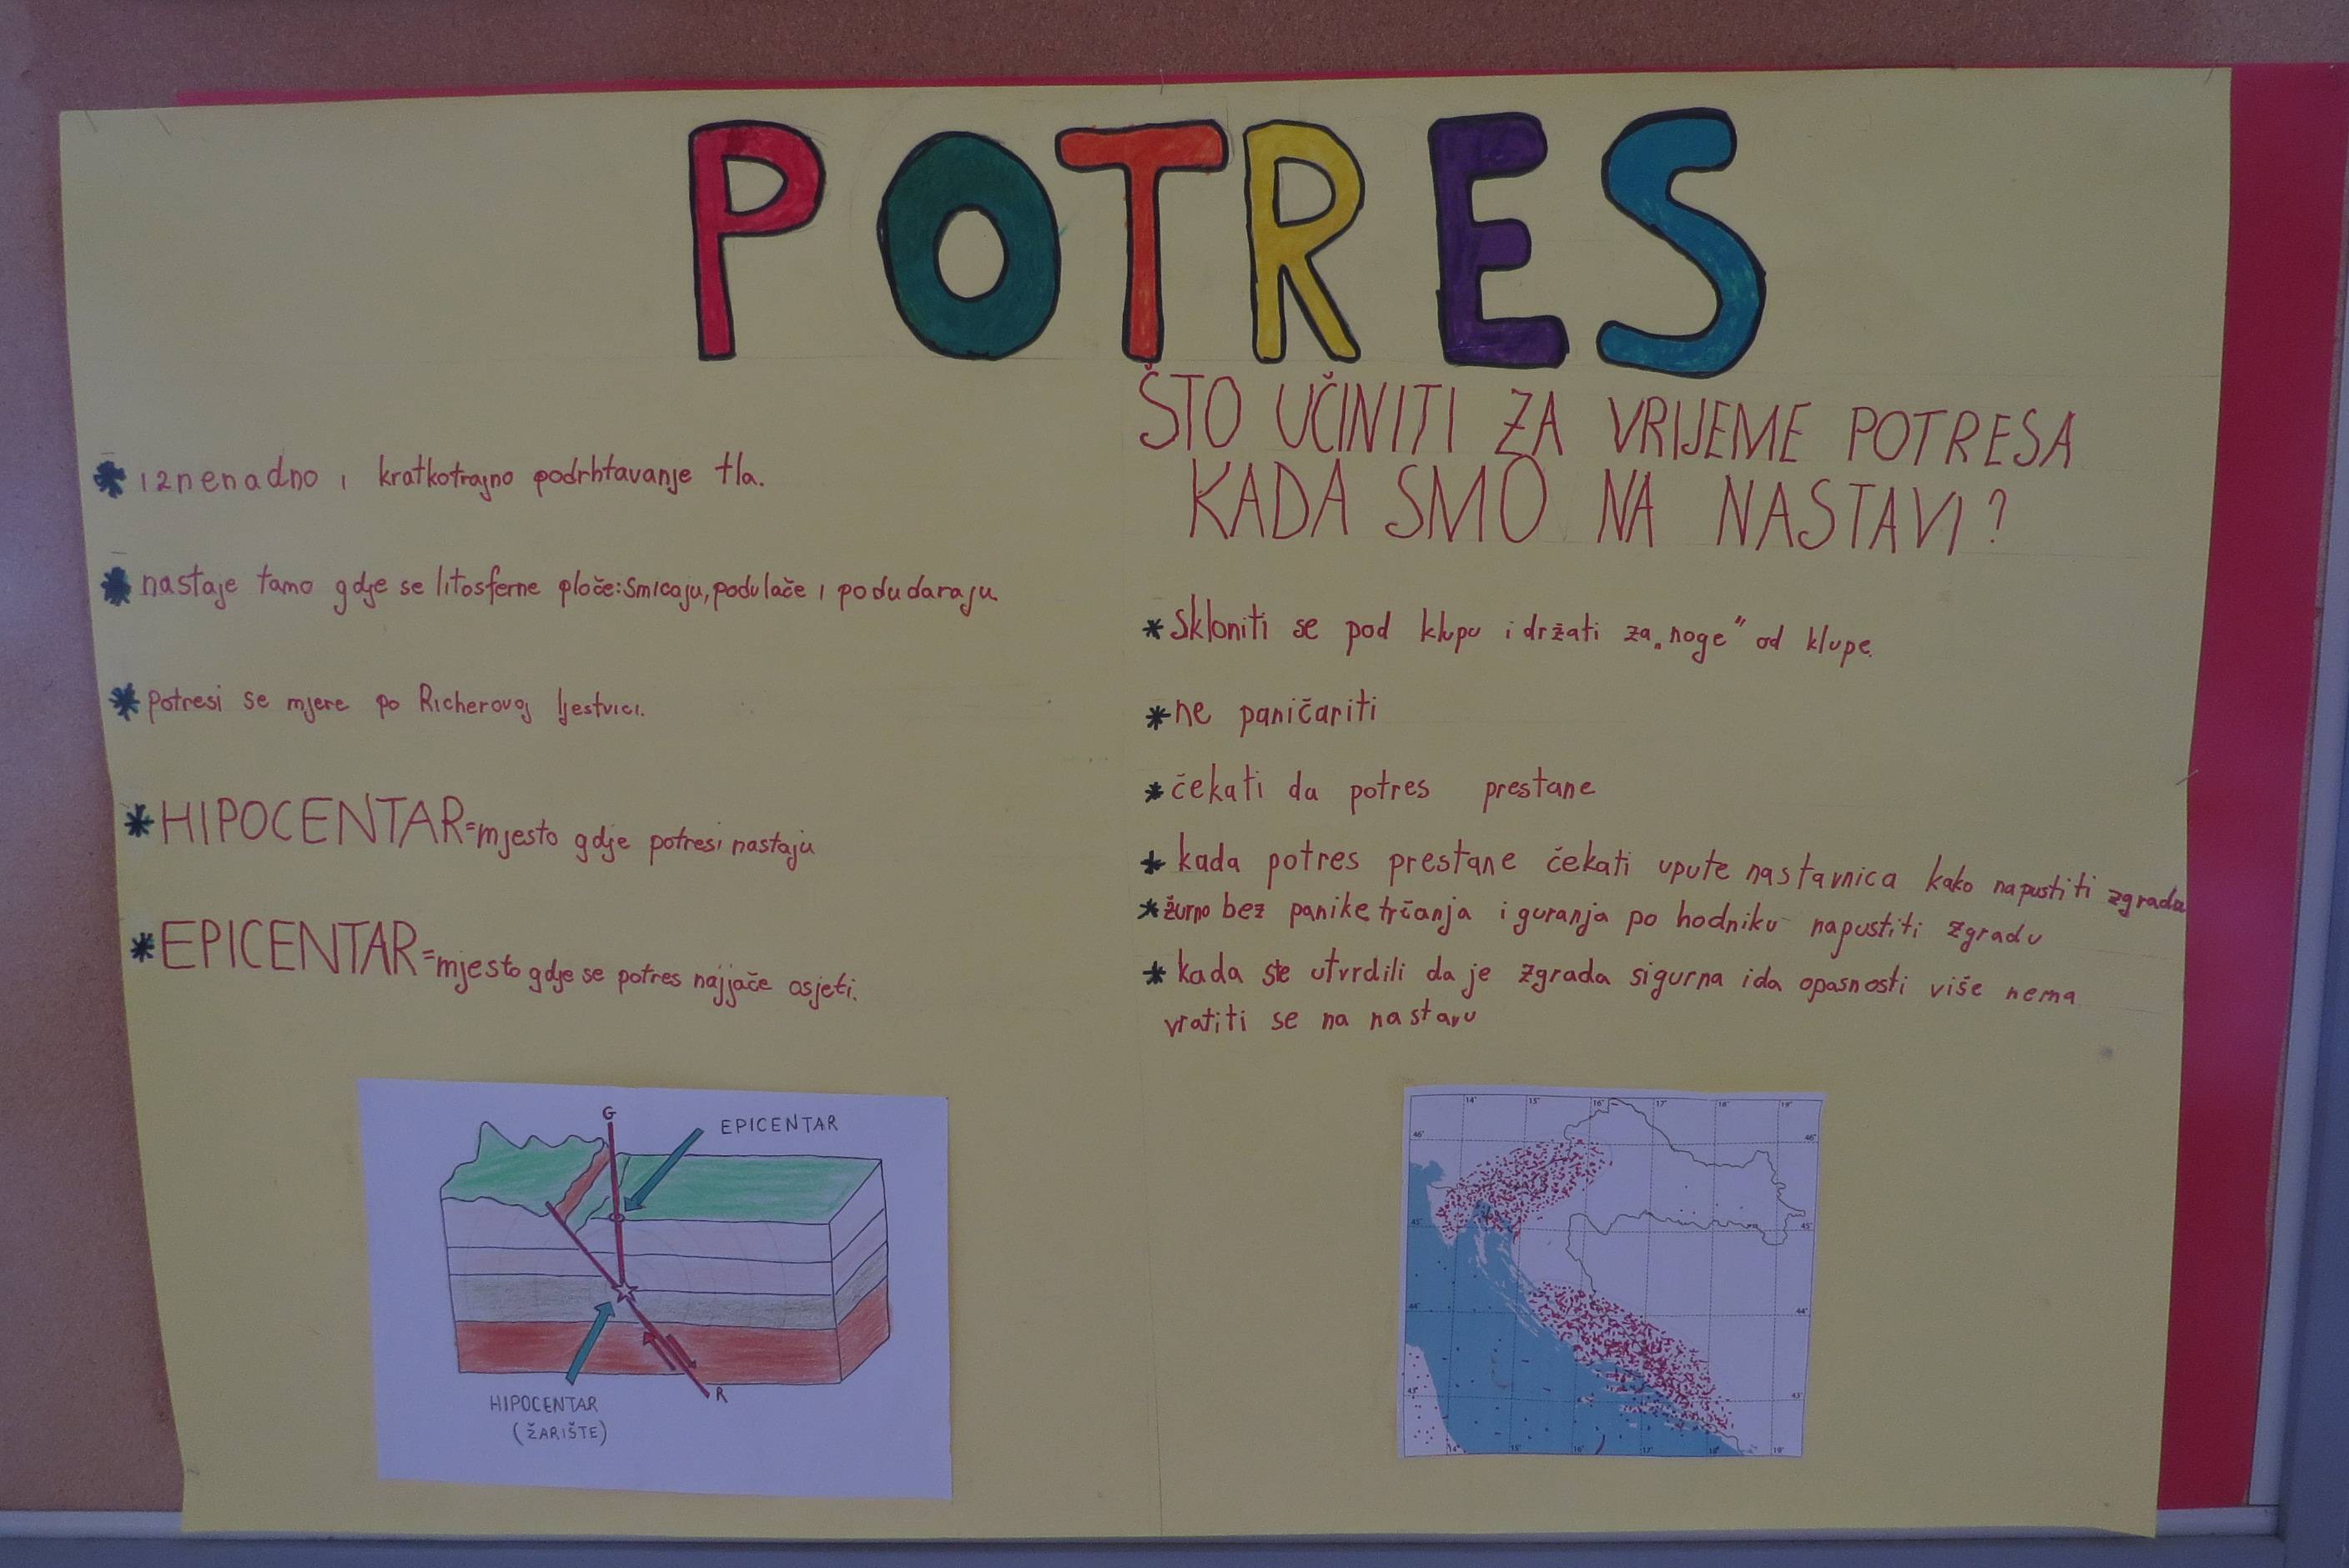 POTRES
* iznenadno i kratkotrajno podrhtavanje tla.
* nastaje tamo gdje se litosferne ploče: smicaju, podulače i podudaraju
* potresi se mjere po Richerovoj ljestvici.
* HIPOCENTAR=mjesto gdje potresi nastaju
* EPICENTAR=mjesto gdje se potres najjače osjeti.
ŠTO UČINITI ZA VRIJEME POTRESA
KADA SMO NA NASTAVI?
* Skloniti se pod klupu i držati za „noge" od klupe.
* ne paničariti
* čekati da potres prestane
* kada potres prestane čekati upute nastavnica kako napustiti zgradu
* žurno bez panike trčanja i guranja po hodniku napustiti zgradu
* kada ste utvrdili da je zgrada sigurna i da opasnosti više nema
vratiti se na nastavu
G
EPICENTAR
R
HIPOCENTAR
(ŽARIŠTE)
14° 15° 16° 17° 18° 19°
46° 46°
45° 45°
44° 44°
43° 43°
14° 15° 16° 17° 18° 19°